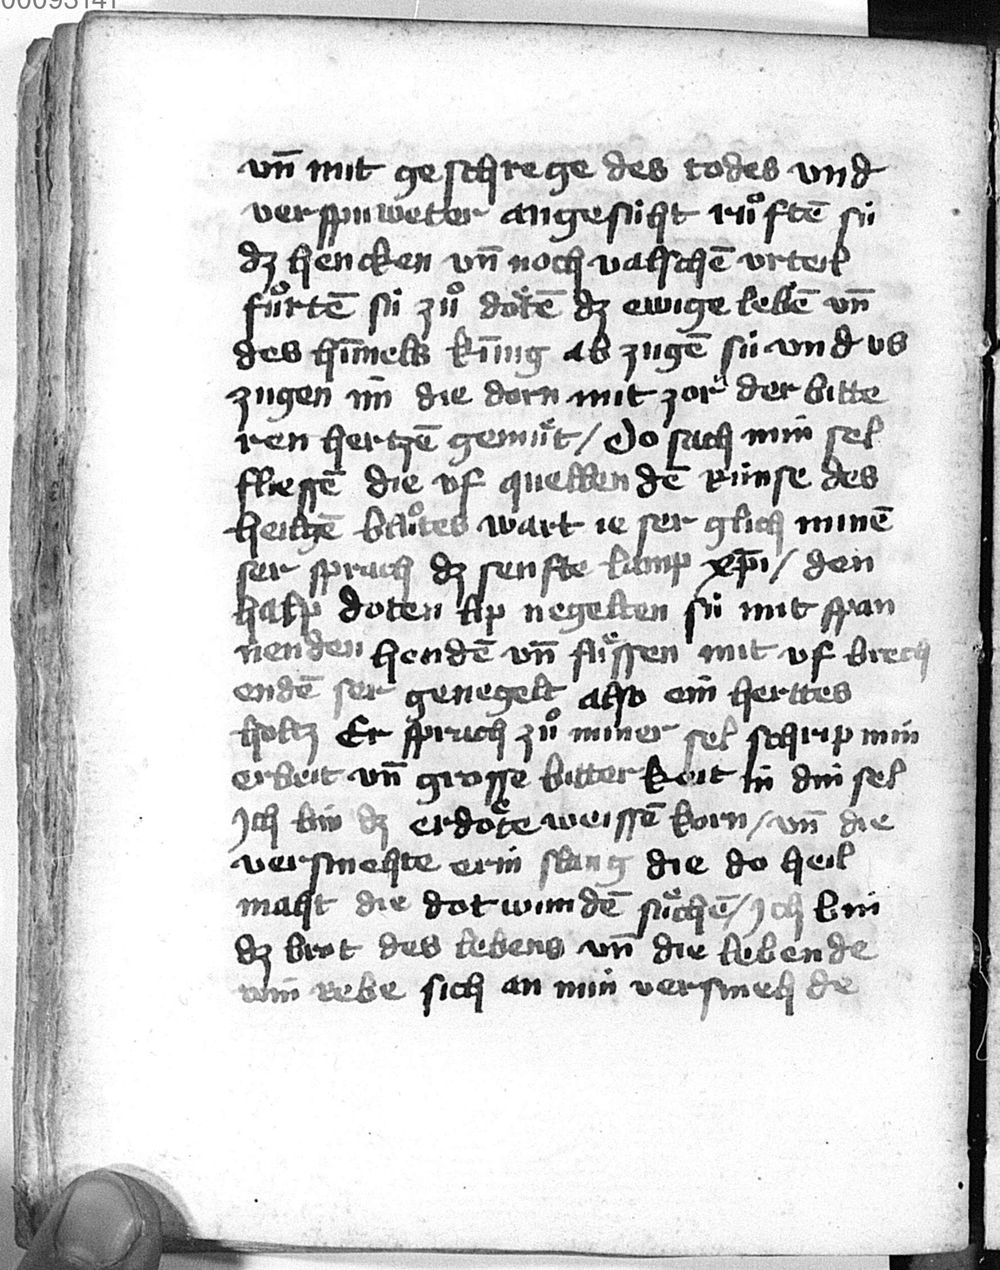 00093141
vn̄ mit geschrege des todes vnd
verspuweter angesiht růftē sü
dz hencken vn̄ noch valschē vrteil
fůrtē sü zů dötē dz ewige lebē vn̄
des hīmels kīnig ab zugē sü vnd vs
zugen im̄ die dorn mit zor der bitte
ren hertzē gemüt / Do sach min sel
fliessē die vf quellendē rünse des
heilgē blůtes wart ie ser glich minē
ser sprach dz senfte lamp xp̄i / den
halp doten lip negelten sü mit span
nenden hendē vn̄ füssen mit vf brech
endē ser genegelt also ein hertes
holtz Er sprach zů miner sel schrip min
erbeit vn̄ grosse bitterkeit in din sel
Ich bin dz erdote weissē korn / vn̄ die
versmehte erin slang die do heil
maht die dot wundē sůchē / Ich bin
dz brot des lebens vn̄ die lebende
win rebe sich an min versmehde